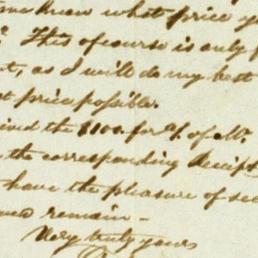 me know what price y
This of course is only f
t, as I will do my best
t price possible.
ived the $100. for % of Mr.
the corresponding Receipt
have the pleasure of see
remain –
Very truly yours